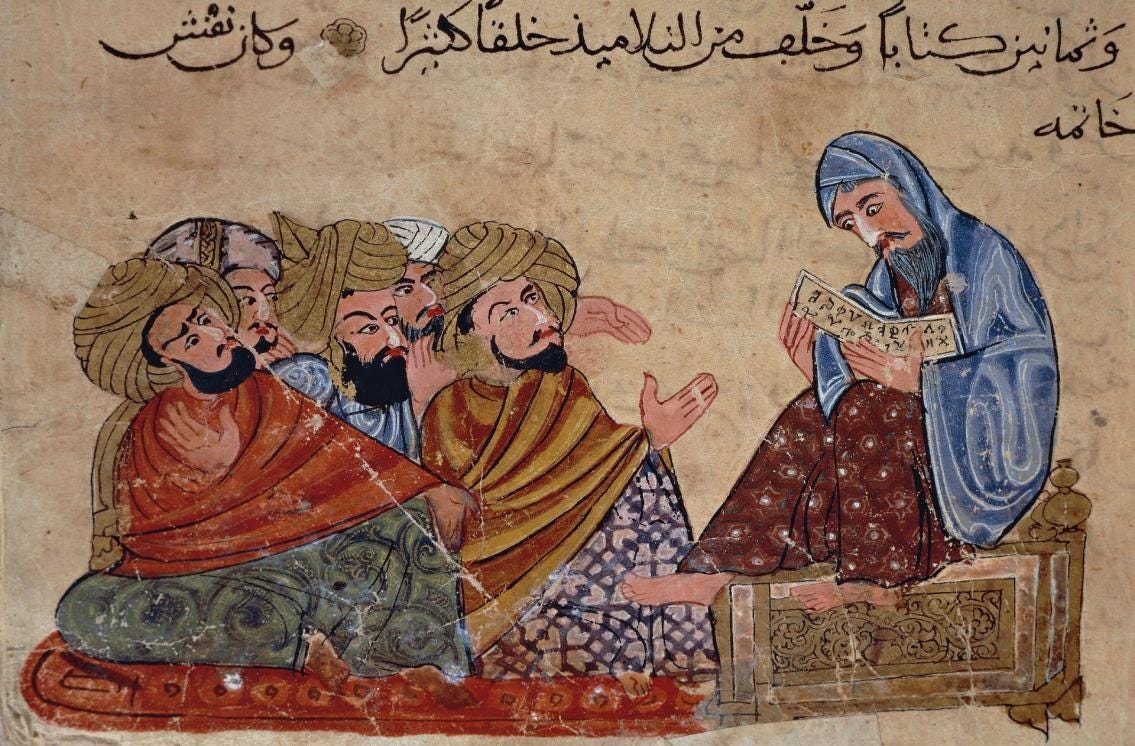 وَثمانين كتاباً وَخَلّف من التلاميذ خلقاً كثيرًا وكان نقش
خَاتمه